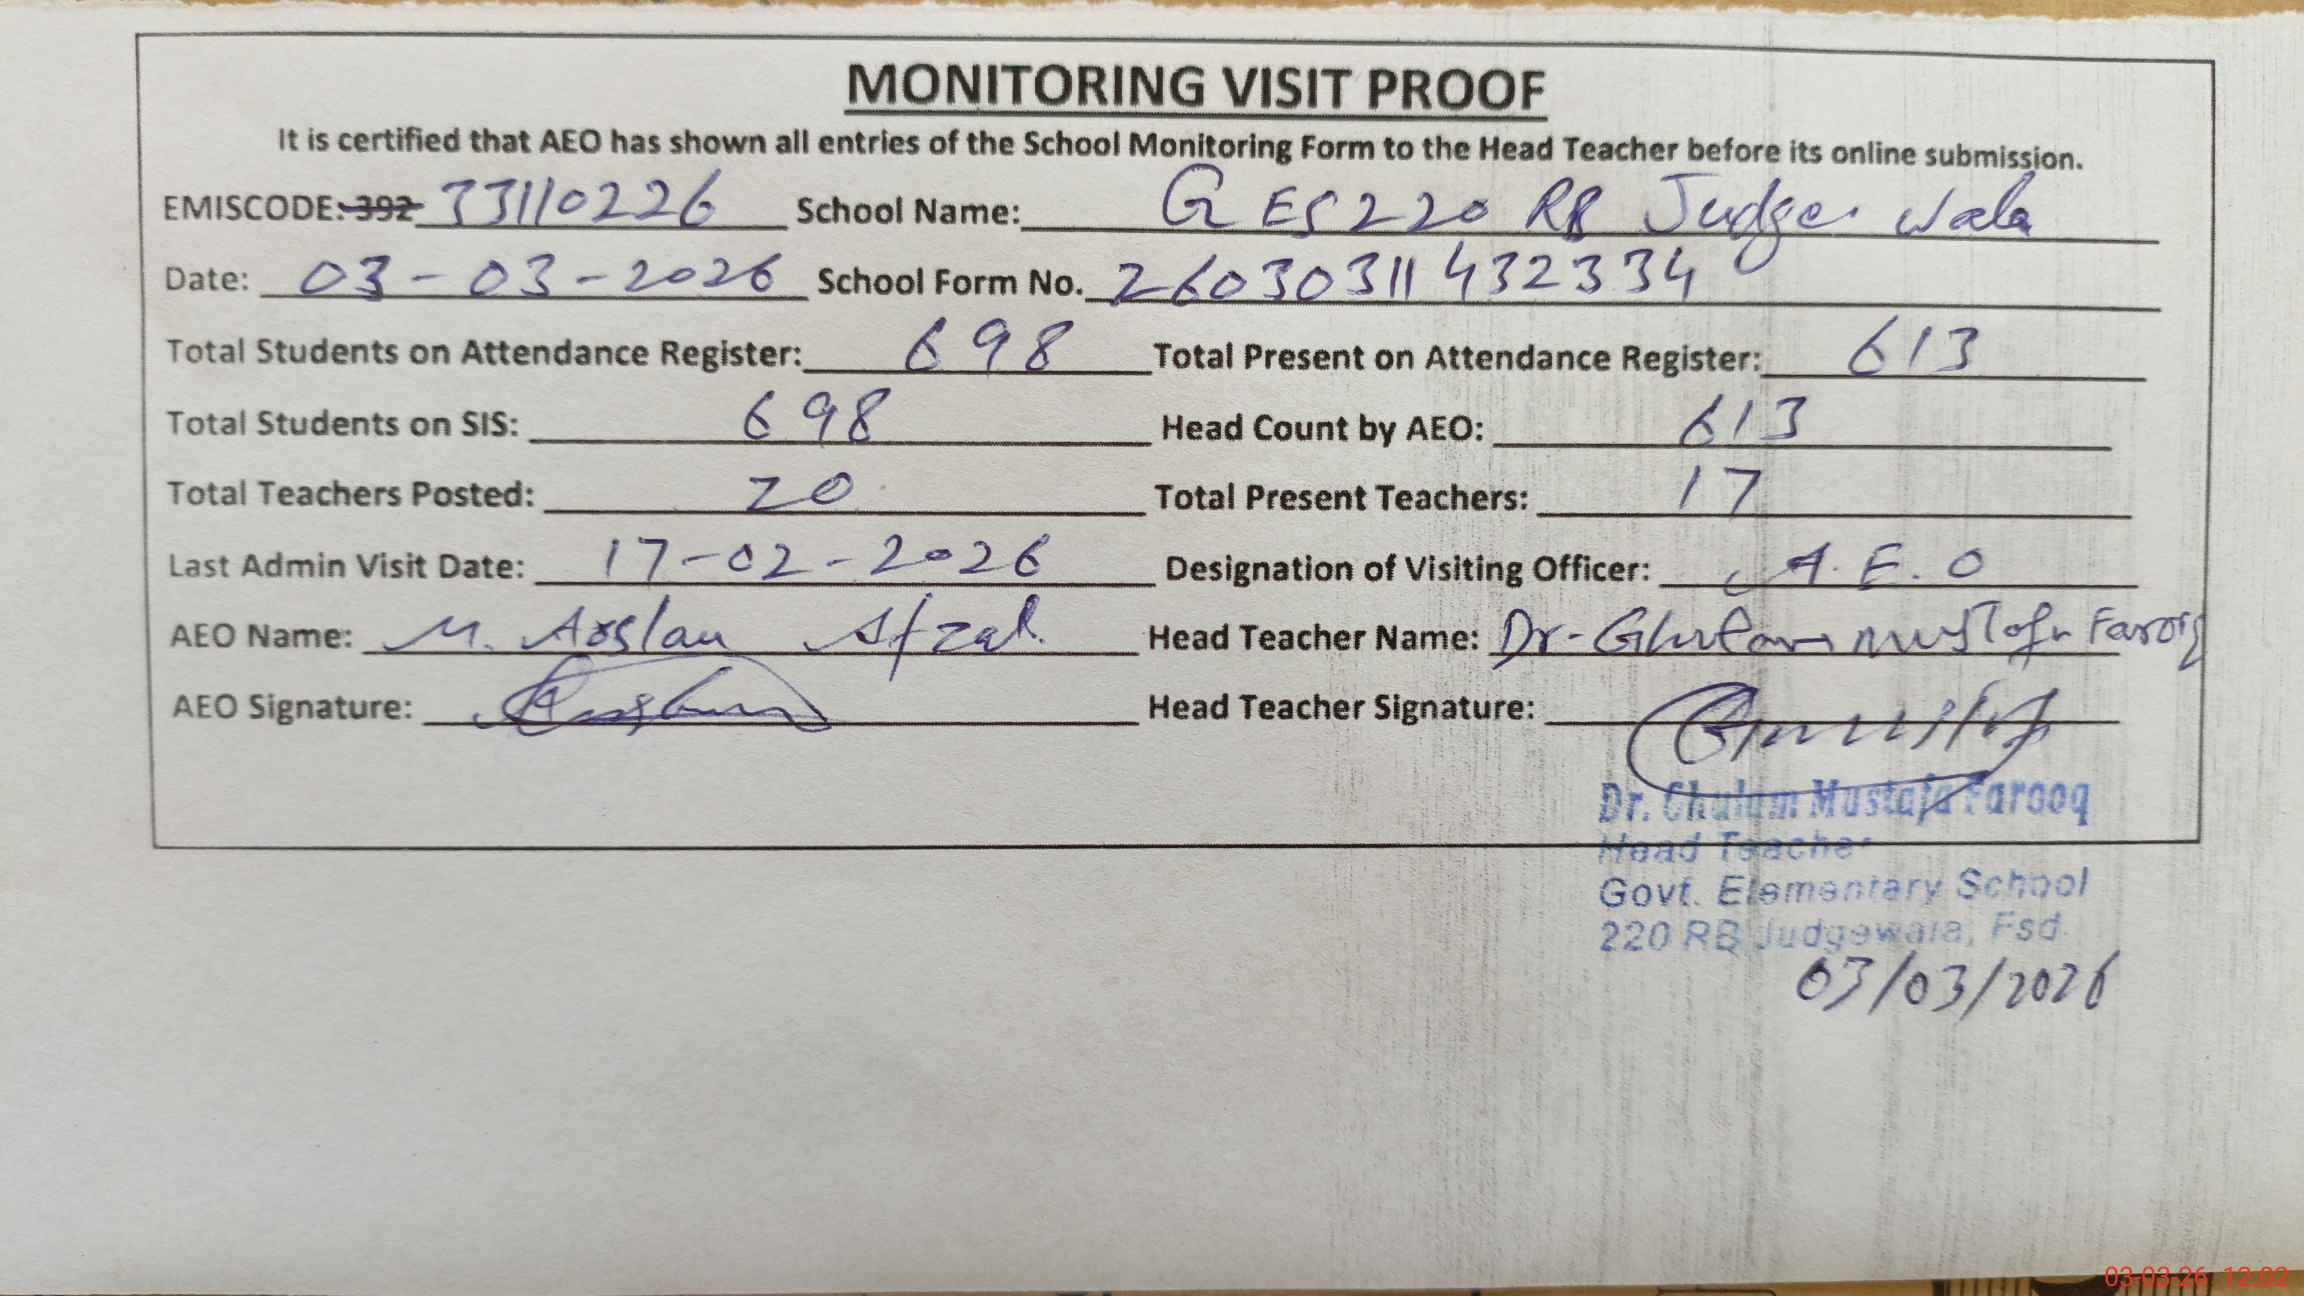 MONITORING VISIT PROOF
It is certified that AEO has shown all entries of the School Monitoring Form to the Head Teacher before its online submission.
EMISCODE: 392 33110226 School Name: GES 220 RB Judge wala
Date: 03-03-2026 School Form No. 26030311432334
Total Students on Attendance Register: 698 Total Present on Attendance Register: 613
Total Students on SIS: 698 Head Count by AEO: 613
Total Teachers Posted: 20 Total Present Teachers: 17
Last Admin Visit Date: 17-02-2026 Designation of Visiting Officer: A.E.O
AEO Name: M. Arslan Afzal. Head Teacher Name: Dr-Ghulam Mustafa Farooq
AEO Signature: Head Teacher Signature:
Dr. Ghulam Mustafa Farooq
Head Teacher
Govt. Elementary School
220 RB Judgewala, Fsd.
03/03/2026
03-03-26 12:02